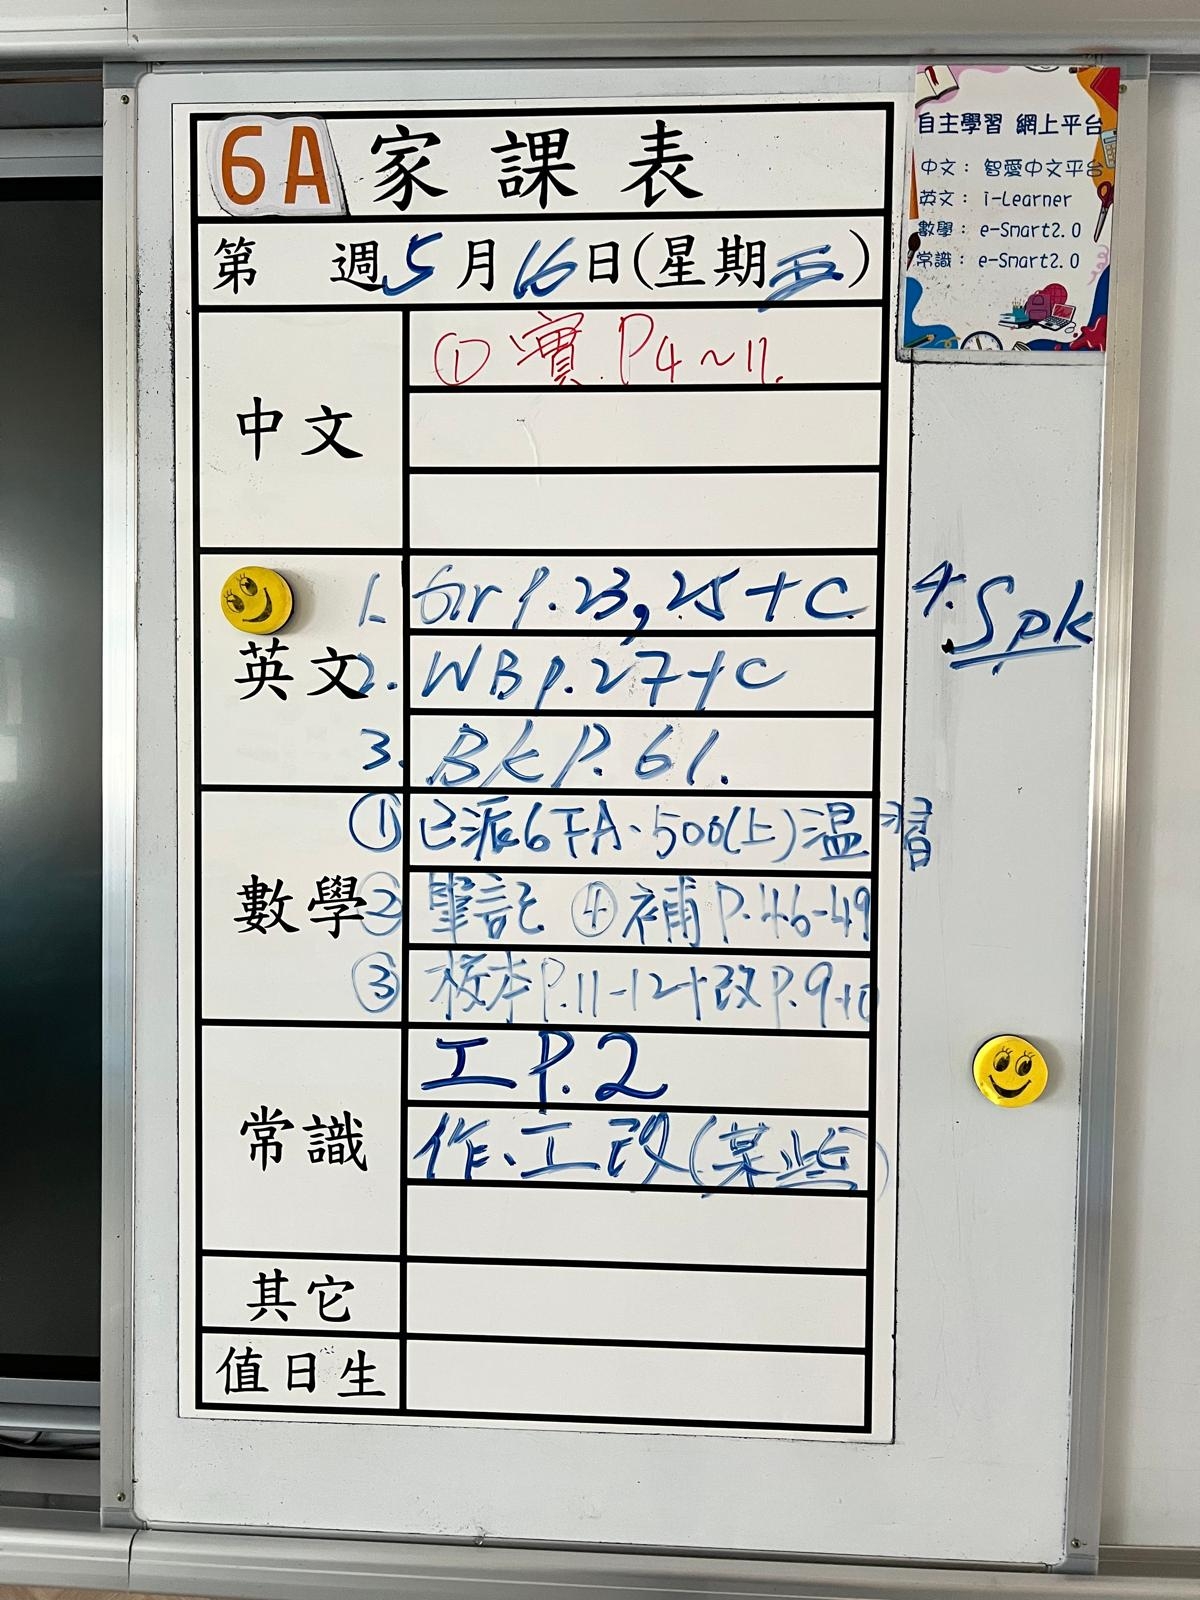 6A 家課表
第 週 5月16日(星期五)
中文
① 實 P4~11.
英文
1. Gr P.23,25+C
2. WB p.27+C
3. BK P.61.
4. Spk
數學
① 已派6下A、500(上)温習
② 筆記 ④ 補 P.46-49
③ 校本P.11-12+改P.9+10
常識
工 P.2
作、工改(某些)
其它
值日生
自主學習 網上平台
中文： 智愛中文平台
英文： i-Learner
數學： e-Smart2.0
常識： e-Smart2.0